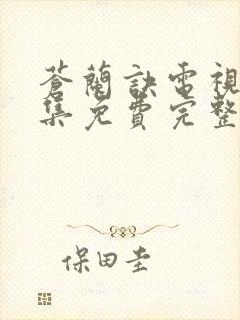 蒼蘭訣電視
集免費完整
保田圭